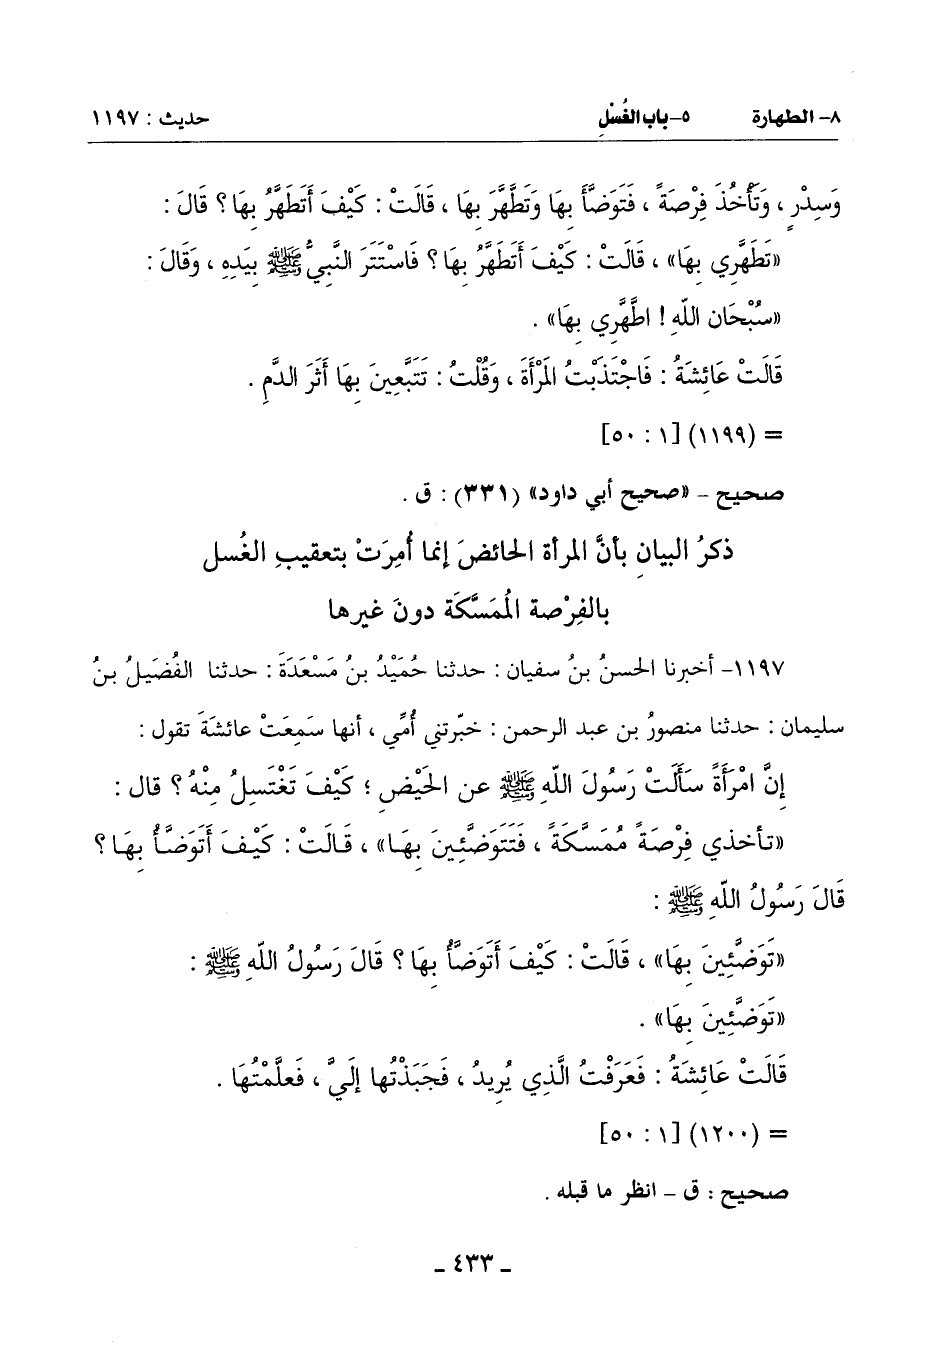 ٨- الطهارة ٥- باب الغُسْل حديث : ١١٩٧
وَسِدْرٍ ، وَتَأْخُذَ فِرْصَةً ، فَتَوَضَّأَ بِهَا وَتَطَّهَّرَ بِهَا ، قَالَتْ : كَيْفَ أَتَطَهَّرُ بِهَا ؟ قَالَ :
«تَطَهَّرِي بِهَا» ، قَالَتْ : كَيْفَ أَتَطَهَّرُ بِهَا ؟ فَاسْتَتَرَ النَّبِيُّ ﷺ بِيَدِهِ ، وَقَالَ :
«سُبْحَان اللّه ! اطَّهَّرِي بِهَا» .
قَالَتْ عَائِشَةُ : فَاجْتَذَبْتُ المَرْأَةَ ، وَقُلْتُ : تَتَبَّعِينَ بِهَا أَثَرَ الدَّمِ .
= (١١٩٩) [١ : ٥٠]
صحيح - «صحيح أبي داود» (٣٣١) : ق .
ذكرُ البيانِ بأنَّ المرأة الحائضَ إنما أُمِرَتْ بتعقيبِ الغُسل
بالفِرْصة المُمَسَّكَة دونَ غيرها
١١٩٧- أخبرنا الحسنُ بنُ سفيان : حدثنا حُمَيْدُ بنُ مَسْعَدَةَ : حدثنا الفُضَيلُ بنُ
سليمان : حدثنا منصورُ بن عبد الرحمن : خبّرتني أُمِّي ، أنها سَمِعَتْ عائشةَ تقول :
إِنَّ امْرَأَةً سَأَلَتْ رَسُولَ اللّهِ ﷺ عن الحَيْضِ ؛ كَيْفَ تَغْتَسِلُ مِنْهُ ؟ قال :
«تأخذي فِرْصَةً مُمَسَّكَةً ، فَتَتَوَضَّئِينَ بِهَا» ، قَالَتْ : كَيْفَ أَتَوَضَّأُ بِهَا ؟
قَالَ رَسُولُ اللّهِ ﷺ :
«تَوَضَّئِينَ بِهَا» ، قَالَتْ : كَيْفَ أَتَوَضَّأُ بِهَا ؟ قَالَ رَسُولُ اللّهِ ﷺ :
«تَوَضَّئِينَ بِهَا» .
قَالَتْ عَائِشَةُ : فَعَرَفْتُ الَّذِي يُرِيدُ ، فَجَبَذْتُها إلَيَّ ، فَعلَّمْتُهَا .
= (١٢٠٠) [١ : ٥٠]
صحيح : ق - انظر ما قبله .
ـ ٤٣٣ ـ